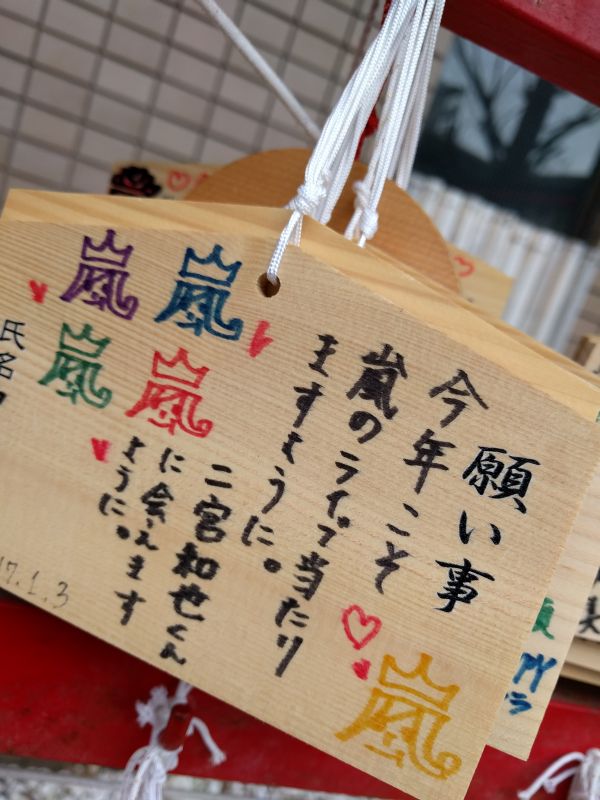 願い事
今年こそ
嵐のライブ当たり
ますように。
二宮和也くん
に会えます
ように。
嵐
嵐
嵐
嵐
嵐
氏名
17.1.3